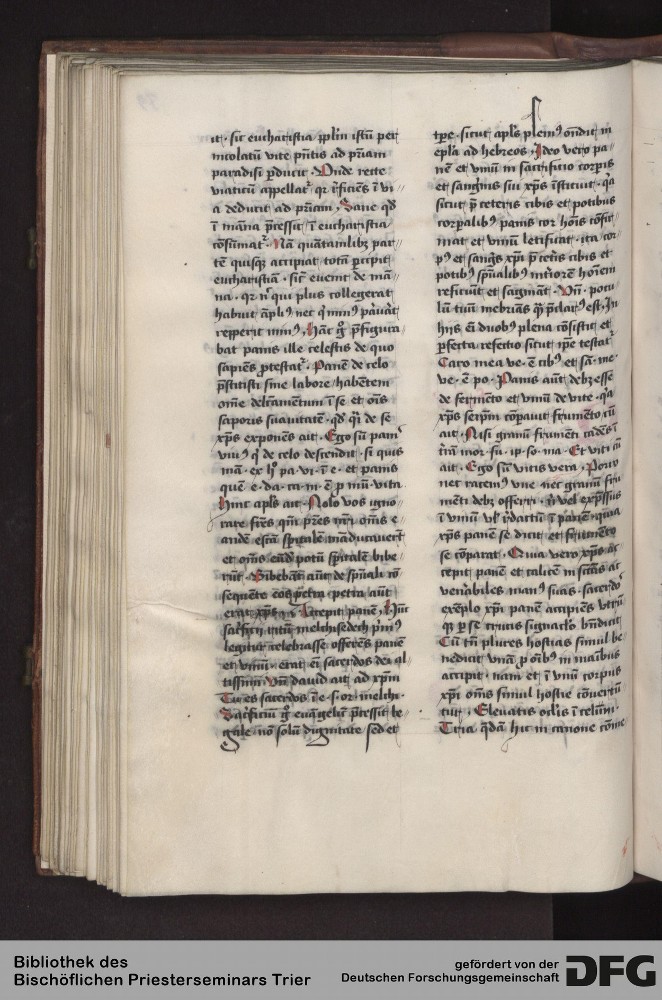 it · sic̄ euchāistia ṗplm̄ istū per
incolatū vite p̄ntis ad p̄riam
paradisi ꝑducit · Unde recte
viaticū appellat᷑ qꝛ ī vi
a deducit ad p̄riam · Sane qd̓
ī māna p̄cessit ī eucharistia
cōsūmat᷑ · Nā quātamlibꝫ par
tē quisqꝫ accipiat totū ꝑcipit
eucharistiā · sic̄ evenit de mā
na · qꝛ nō qui plus collegerat
habuit āpliꝰ nec qͥ minꝰ ꝑaūat
reꝑperit minꝰ · hāc gͦ p̄figura
bat panis ille celestis de quo
sapiēs ꝓtestat᷑ · Panē de celo
p̄stitisti sine labore habētem
om̄e delcāmentum ī se et om̄s
saporis suavitatē · qd̓ qͥ de se
xp̄s exponēs ait · Ego sū panꝭ
viuꝰ qͥ de celo descendit · si quis
mā · ex hͦ pa · vi · ī e · et panis
quē e · da · ca · m · ē ꝑ mū · vita
hinc apls̄ ait · Nolo vos igno
rare fr̄es qm̄ pr̄es nr̄i om̄s e
andē escā sp̄ualē māducauer̄t
et om̄s eūd̄ potū sp̄ualē bibe
rūt · Bibebāt aūt de sp̄uali cō
sequēte eos petra · petra aūt
erat xp̄s · Accepit panē · Hūc
sac̄ficij ritū melchisedech pͥmꝰ
legitur celebrasse offerēs panē
et vinū · erat eī sacerdos dei al
tissimi · Vn̄ dauid ait ad xp̄m
Tu es sacerdos ī e · s · or · melchi ·
Sac̄ficiū gͦ euāgelicū p̄cessit le
gale · nō solū dignitate sed et
tp̄e · sicut apls̄ pleniꝰ on̄dit in
epl̄a ad hebreos · Ideo vero pa
nē et vinū in sac̄ificio corp̄is
et sang̓nis sui xp̄s īstituit · qͥa
sicut p̄ ceteris cibis et potibus
corꝑalibꝰ panis cor hoīs cōfir
mat et vinū letificat · ita cor
pꝰ et sang̓s xp̄i p̄ cetis cibis et
potibꝰ sp̄ualibꝰ īteriorē hoīem
reficiūt et sagināt · Vn̄ · pocu
lū tuū inebriās qͣ̄ p̄clarꝰ est · In
hiis eī duobꝰ plena cōsistit et
ꝑfecta refectio sicut ip̄e testat᷑
Caro mea ve · ē cibꝰ et sā · me ·
ve · ē po · Panis aūt debꝫ esse
de fermēto et vinū de vite · qͥa
xp̄s seip̄m cōparuit frumēto cū
ait · Nisi granū frumēti cadēs ī
trā mor · fu · ip · so · ma · Et viti cū
ait · Ego sū vitis vera · Porro
nec racemꝰ uue nec granū fru
mēti debꝫ offerri · nͥ vel exp̄ssus
ī vinū vl̓ redactū ī panē · quia
xp̄s panē se dicit et frumēto
se cōparat · Quia vero xp̄s ac
cepit panē et calicē in sc̄as ac
venābiles manꝰ suas · sacerdos
exēplo xp̄i panē accipiēs
qꝫ ꝑ se crucis signac̄lo bn̄dicit
Cū tn̄ plures hostias simul be
nedicit vnā ꝓ oībꝰ in maībus
accipit · nam et ī vnū corpus
xp̄i om̄s simul hostie cōuertū
tur · Eleuatis oc̄lis ī celum ·
Tria qd̄am hic in canone cōme
Bibliothek des
Bischöflichen Priesterseminars Trier
gefördert von der
Deutschen Forschungsgemeinschaft
DFG